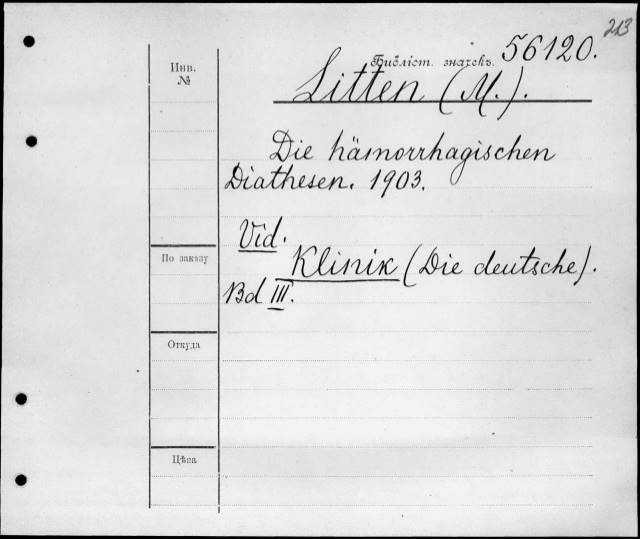 213
Инв.
№
Библіот. значекъ. 56120.
Litten (M.).
Die hämorrhagischen
Diathesen. 1903.
Vid.
По заказу
Klinik (Die deutsche).
Bd III.
Откуда
Цѣна